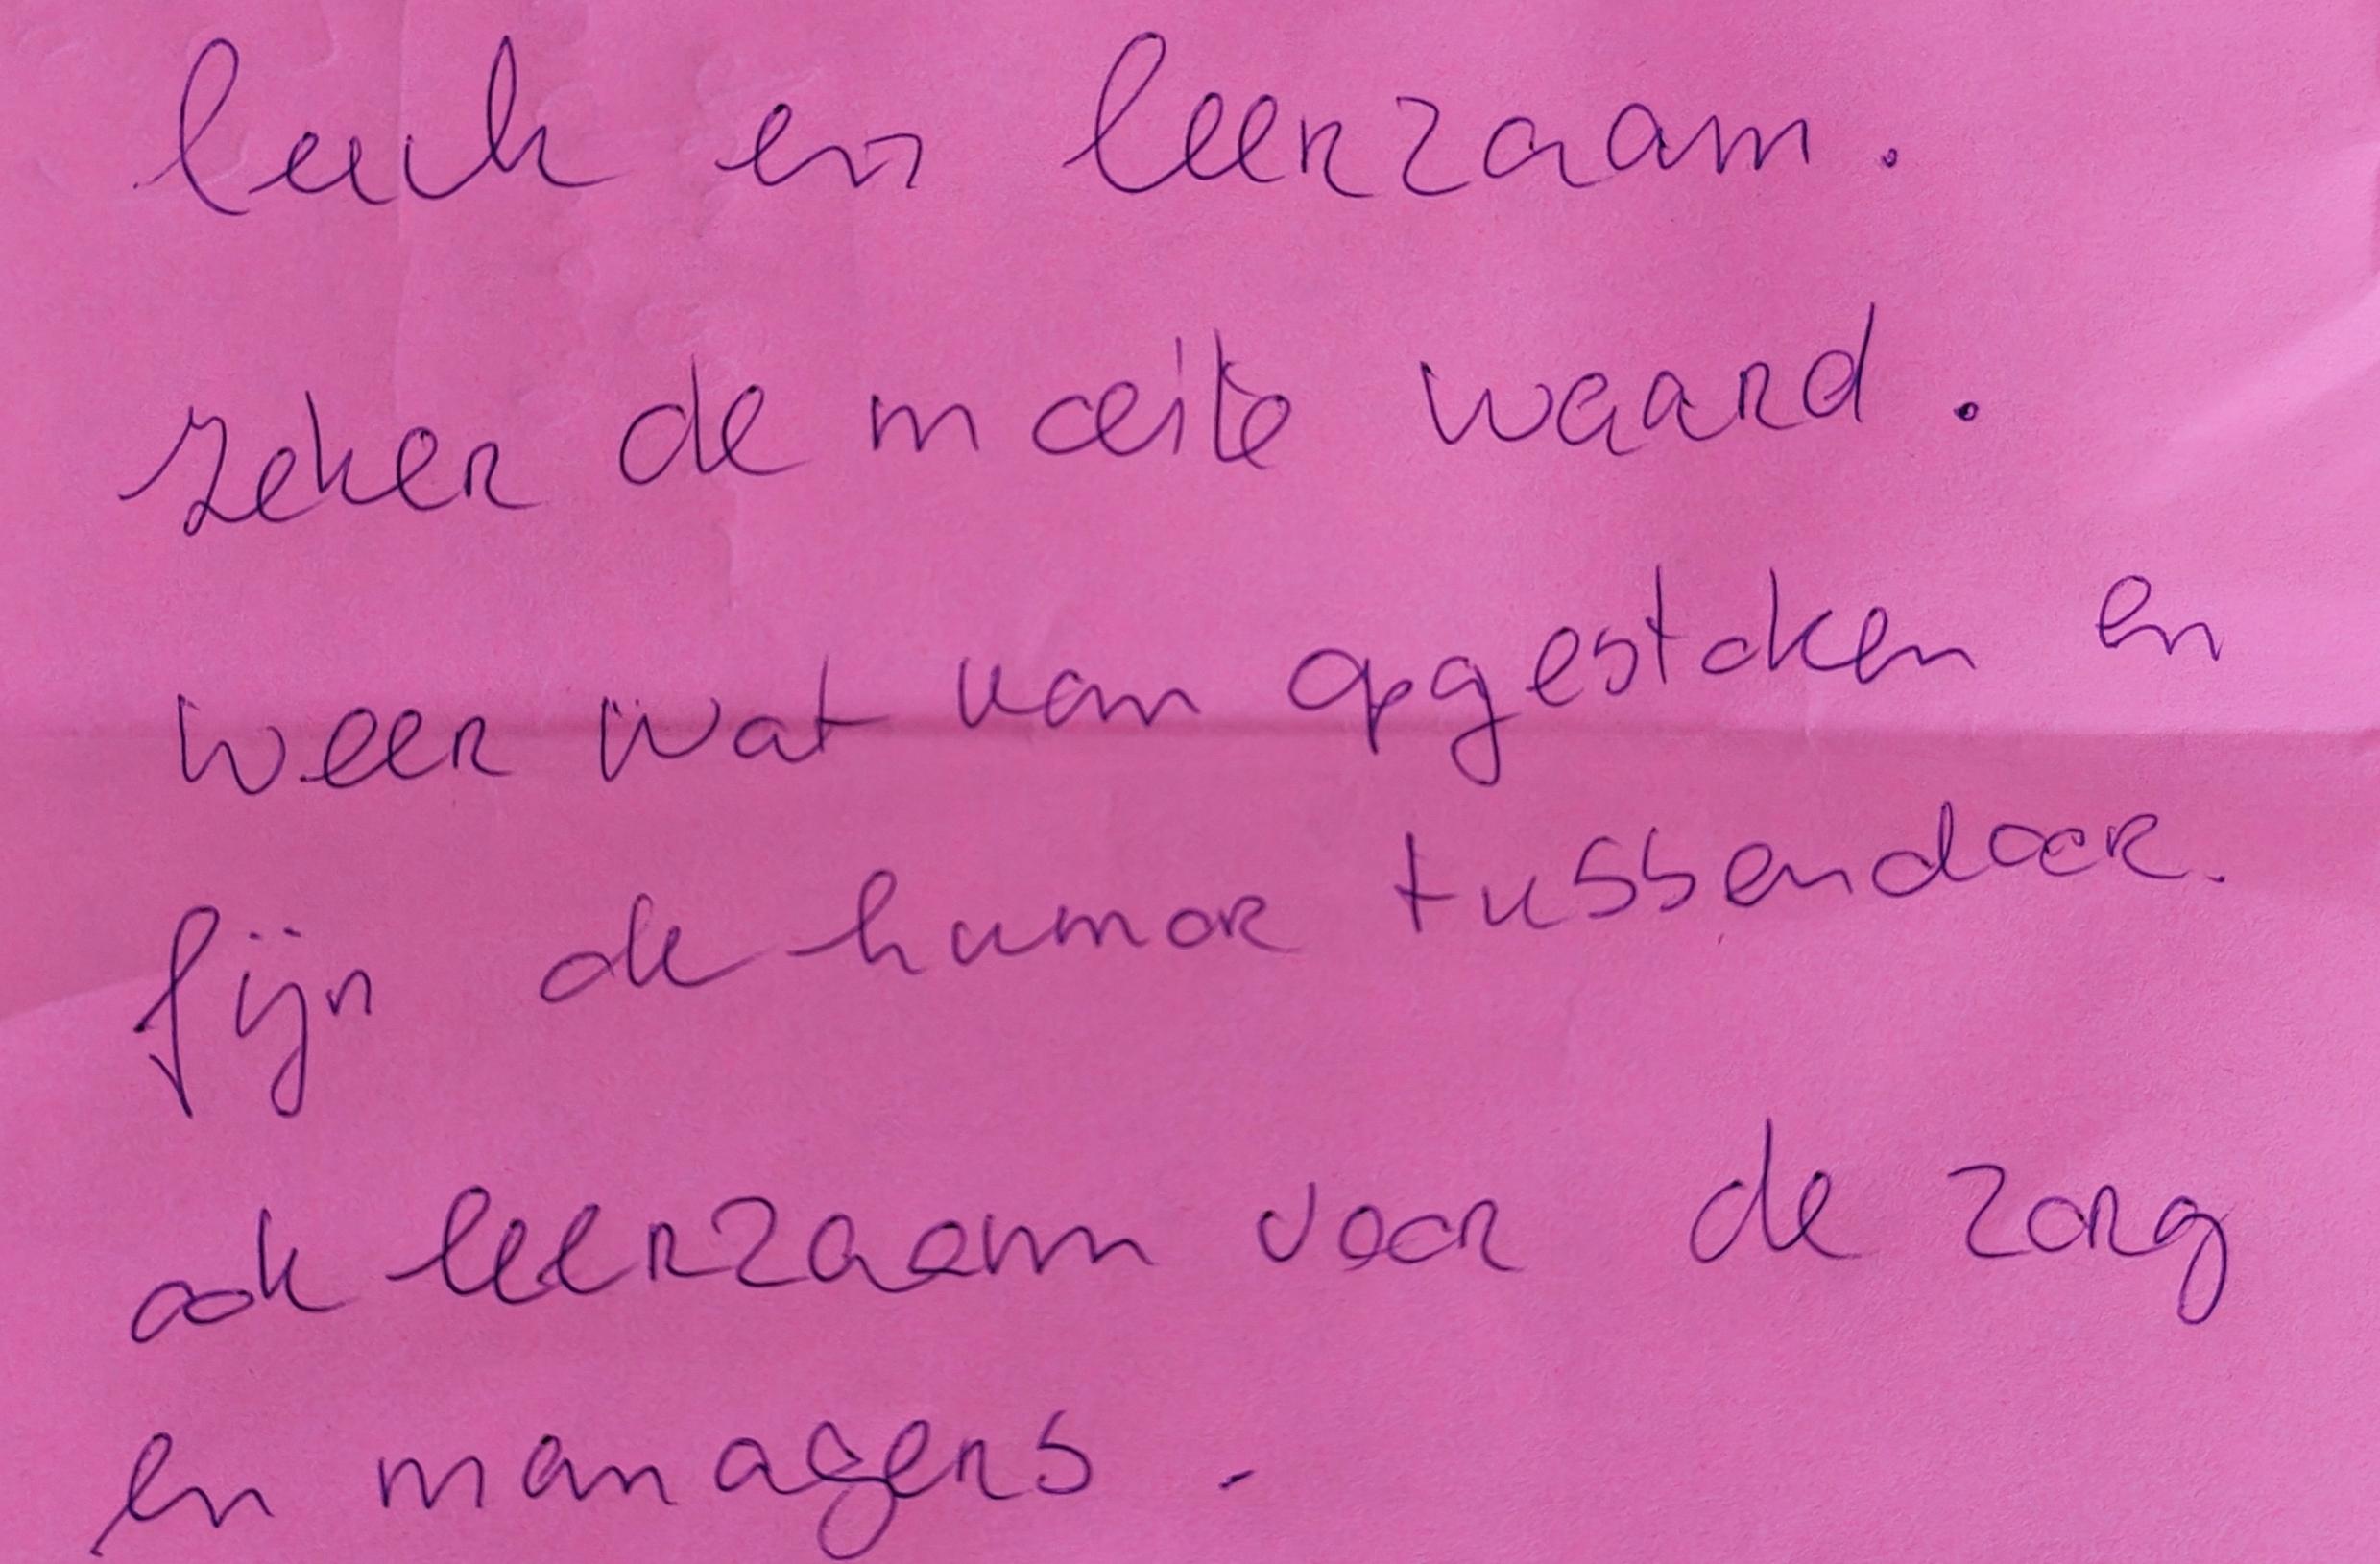 leuk en leerzaam.
zeker de moeite waard.
weer wat van opgestoken en
fijn de humor tussendoor.
ook leerzaam voor de zorg
en managers.